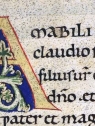 AMABILI
claudioſ
dño. et
pater et mag